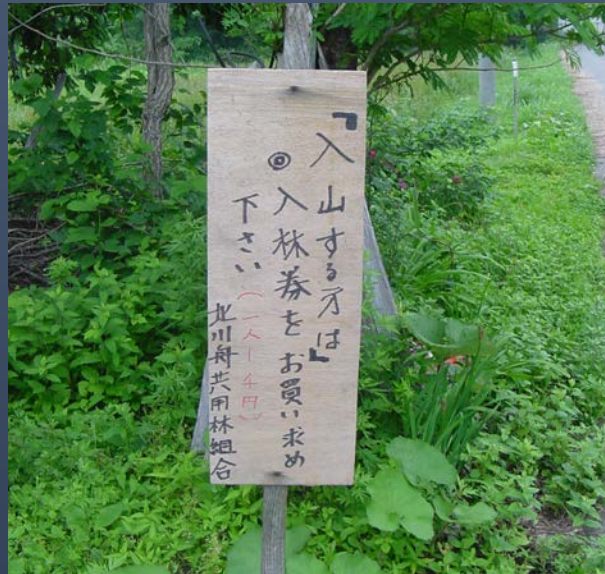 「入山する方は」
◎入林券をお買い求め
下さい(一人1千円)
北川舟共用林組合